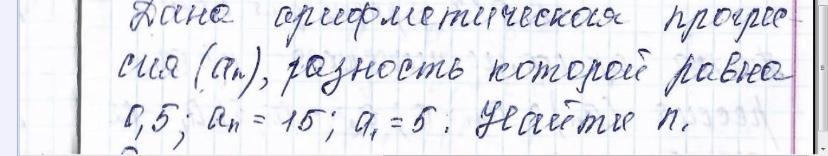 Дана арифметическая прогрес
сия (aₙ), разность которой равна
0,5; aₙ = 15; a₁ = 5. Найти n.